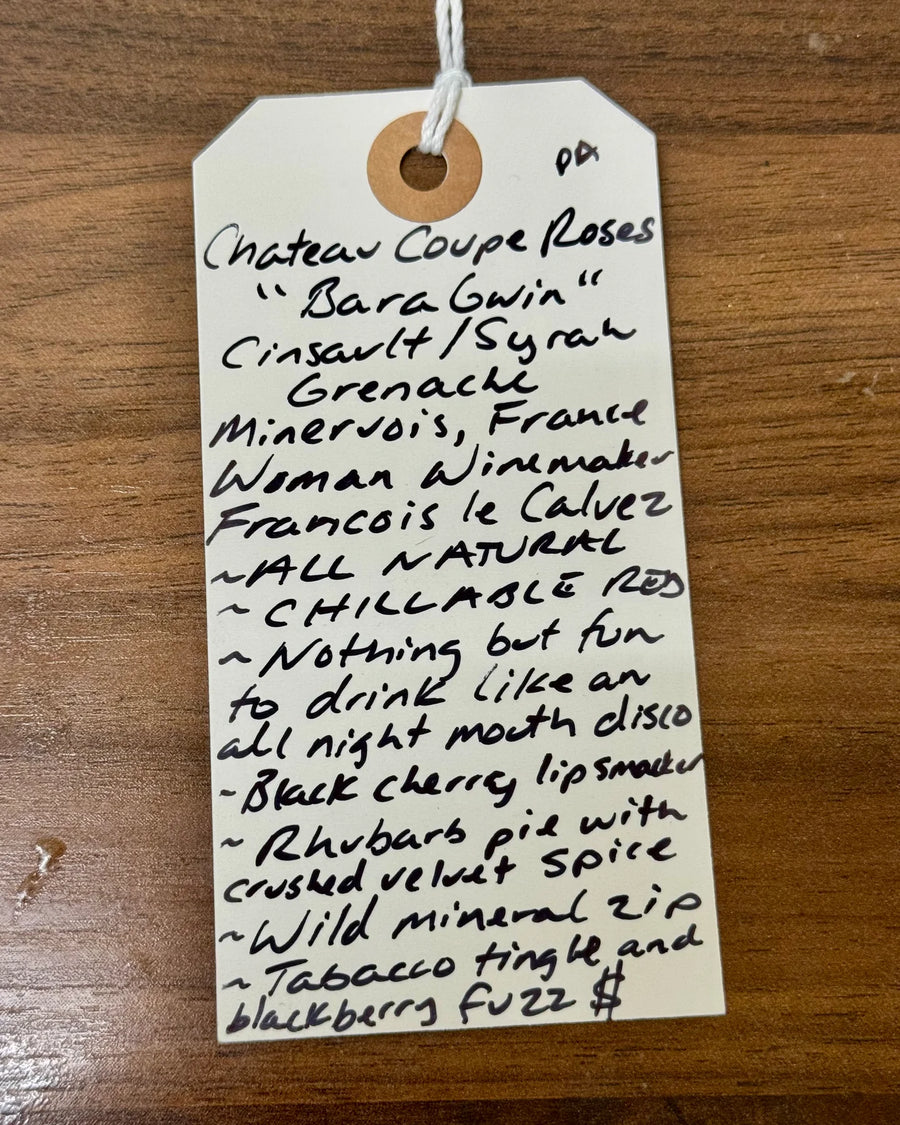 PA
Chateau Coupe Roses
"Bara Gwin"
Cinsault/Syrah
Grenache
Minervois, France
Woman Winemaker
Francois le Calvez
~ALL NATURAL
~ CHILLABLE RED
~ Nothing but fun
to drink like an
all night mouth disco
~Black cherry lipsmacker
~ Rhubarb pie with
crushed velvet spice
~Wild mineral zip
~Tabacco tingle and
blackberry fuzz $